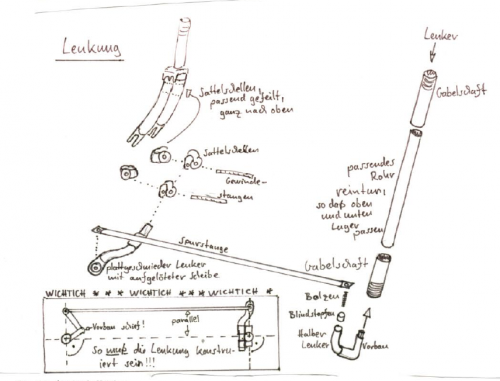 Lenkung
Lenker
Gabelschaft
Sattelschellen,
passend gefeilt,
ganz nach oben
Sattelschellen
Gewinde-
stangen
passendes
Rohr
reintun,
so daß oben
und unten
Lager
passen
Spurstange
Gabelschaft
plattgeschmiedeter Lenker
mit aufgelöteter Scheibe
Bolzen
Blindstopfen
Halber
Lenker
Vorbau
WICHTICH * * * WICHTICH * * * WICHTICH *
Vorbau schief!
parallel
So muß die Lenkung konstru-
iert sein!!!